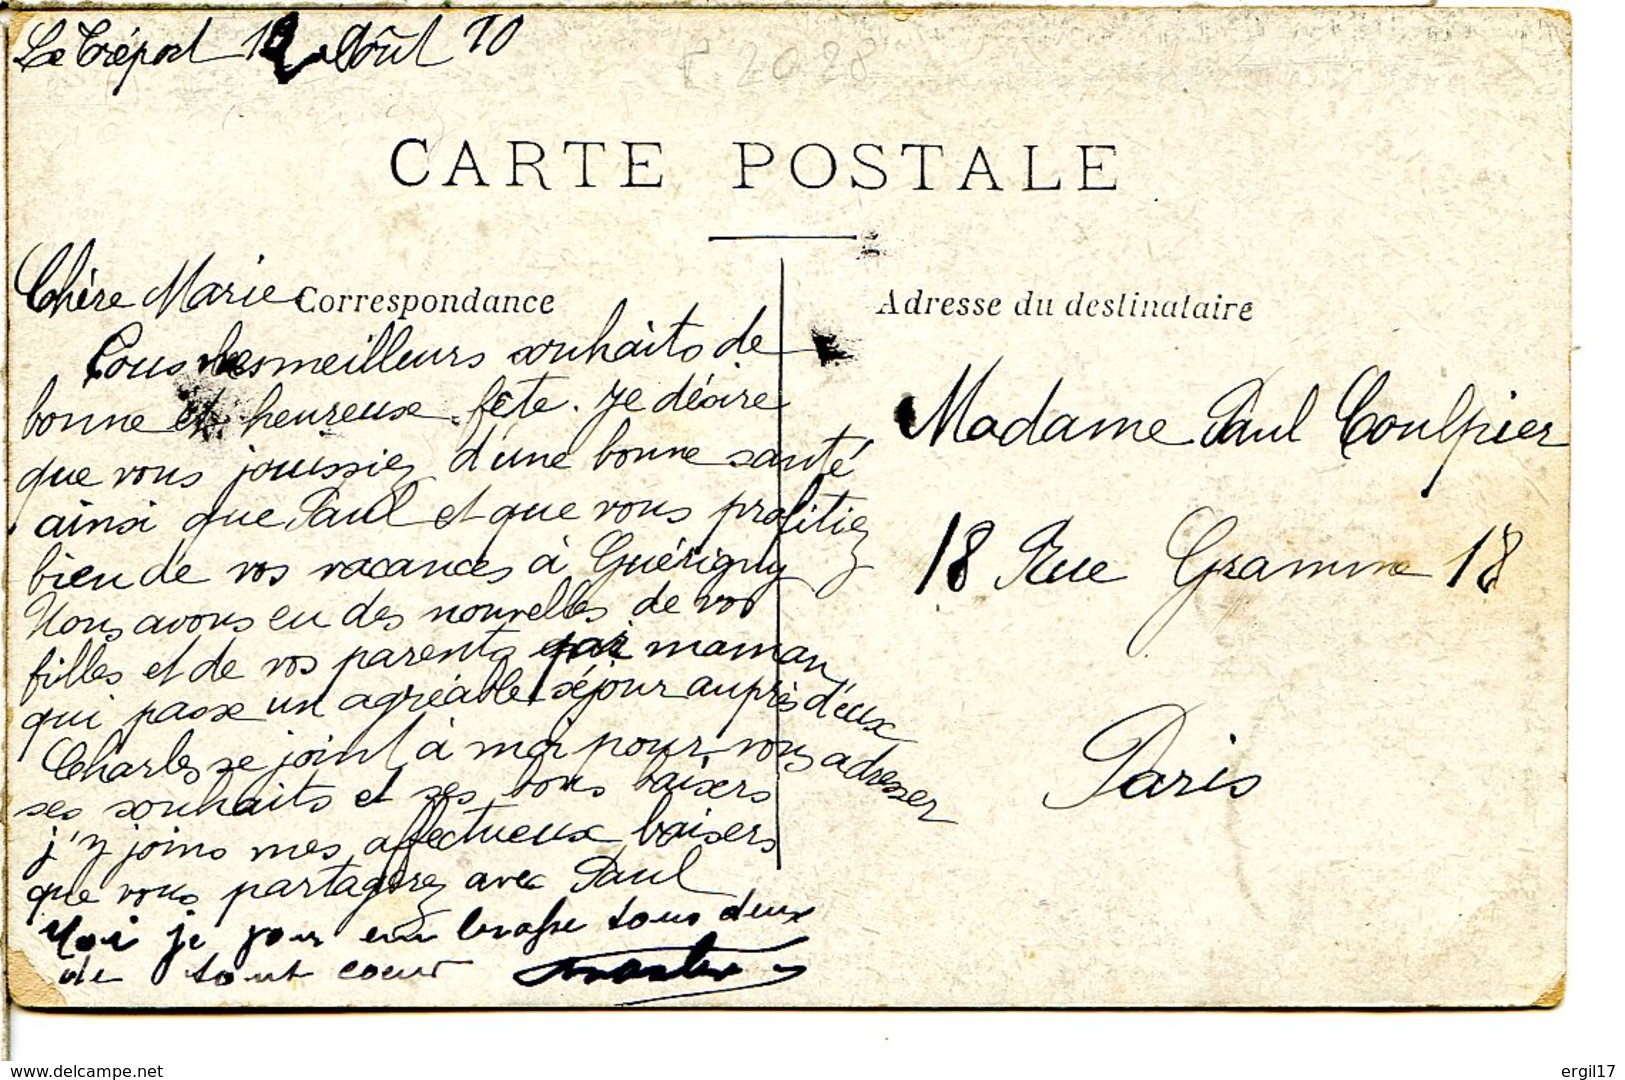 Le Tréport 12 Août 10
E 2028
CARTE POSTALE
Chère Marie
Correspondance
Tous mes meilleurs souhaits de
bonne et heureuse fête. Je désire
que vous jouissiez d'une bonne santé
ainsi que Paul et que vous profitiez
bien de vos vacances à Guérigny
Nous avons eu des nouvelles de vos
filles et de vos parents par maman
qui passe un agréable séjour auprès d'eux
Charles se joint à moi pour vous adresser
ses souhaits et ses bons baisers
j'y joins mes affectueux baisers
que vous partagerez avec Paul
Moi je vous embrasse tous deux
de tout coeur
Adresse du destinataire
Madame Paul Coulpier
18 Rue Gramme 18
Paris
www.delcampe.net
ergil17